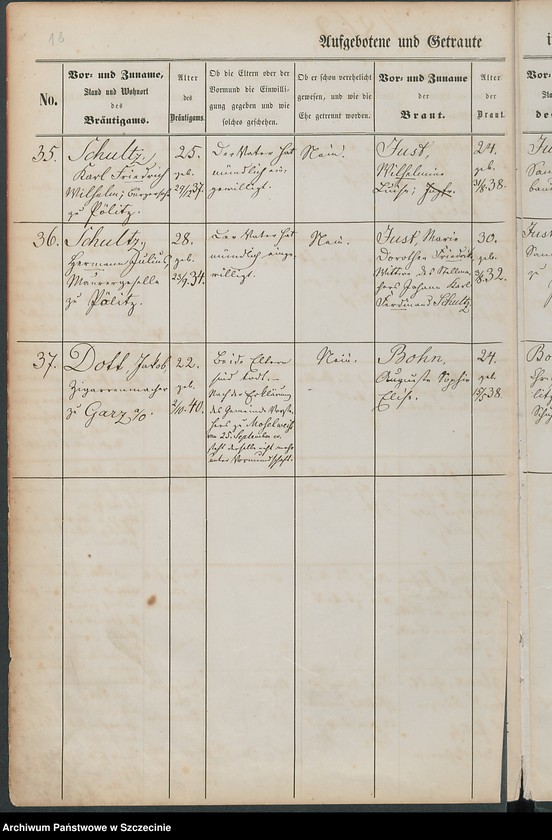 18
Aufgebotene und Getraute
No.
Vor- und Zuname,
Stand und Wohnort
des
Bräutigams.
Alter
des
Bräutigams.
Ob die Eltern oder der
Vormund die Einwilli-
gung gegeben und wie
solches geschehen.
Ob er schon verehelicht
gewesen, und wie die
Ehe getrennt worden.
Vor- und Zuname
der
Braut.
Alter
der
Braut.
35.
Schultz,
Karl Friedrich
Wilhelm; Bürgersohn
zu Pölitz.
25.
geb.
37.
Der Vater hat
mündlich ein-
gewilligt.
Nein.
Just,
Wilhelmine
Luise; Jngfr.
24.
geb.
38.
36.
Schultz,
Hermann Julius,
Maurergeselle
zu Pölitz.
28.
geb.
34.
Der Vater hat
mündlich einge-
willigt.
Nein.
Just, Marie
Dorothee Friedrike,
Wittwe des Stellma-
chers Johann Karl
Ferdinand Schultz
30.
geb.
32.
37.
Dott Jakob,
Zigarrenmacher
zu Garz a/O.
22.
geb.
40.
Beide Eltern
sind todt.
Nach der Erklärung
des Gemeinde Vorste-
hers zu
vom 25. September
steht derselbe nicht mehr
unter Vormundschaft.
Nein.
Bohn,
Auguste Sophie
Elise.
24.
geb.
38.
Archiwum Państwowe w Szczecinie